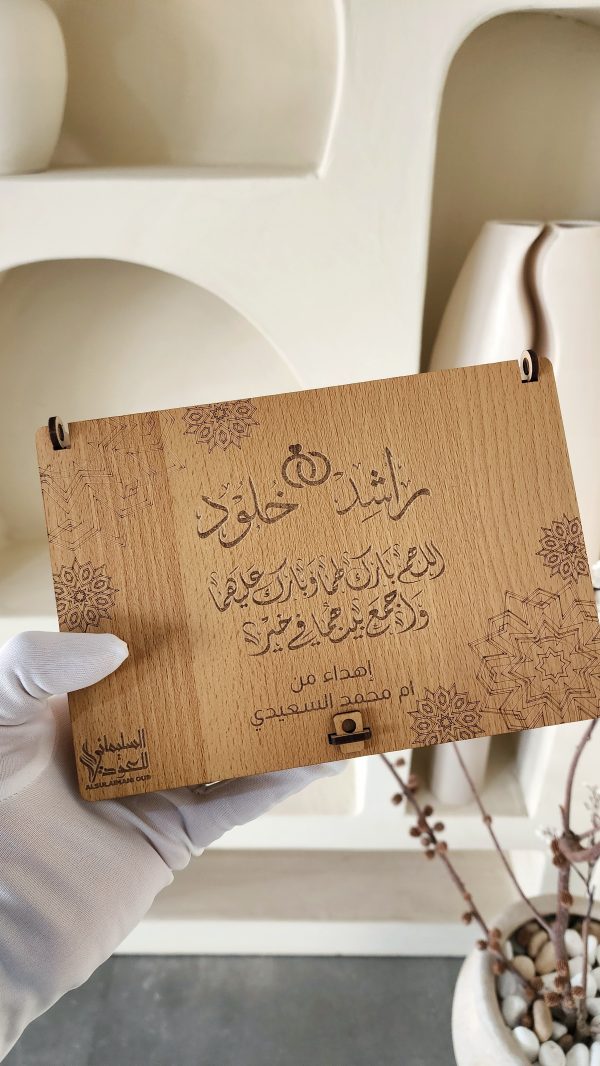 راشد خلود
اللهم بارك لهما وبارك عليهما
واجمع بينهما في خير
إهداء من
ام محمد السعيدي
السليماني
للعود
ALSULAIMANI OUD